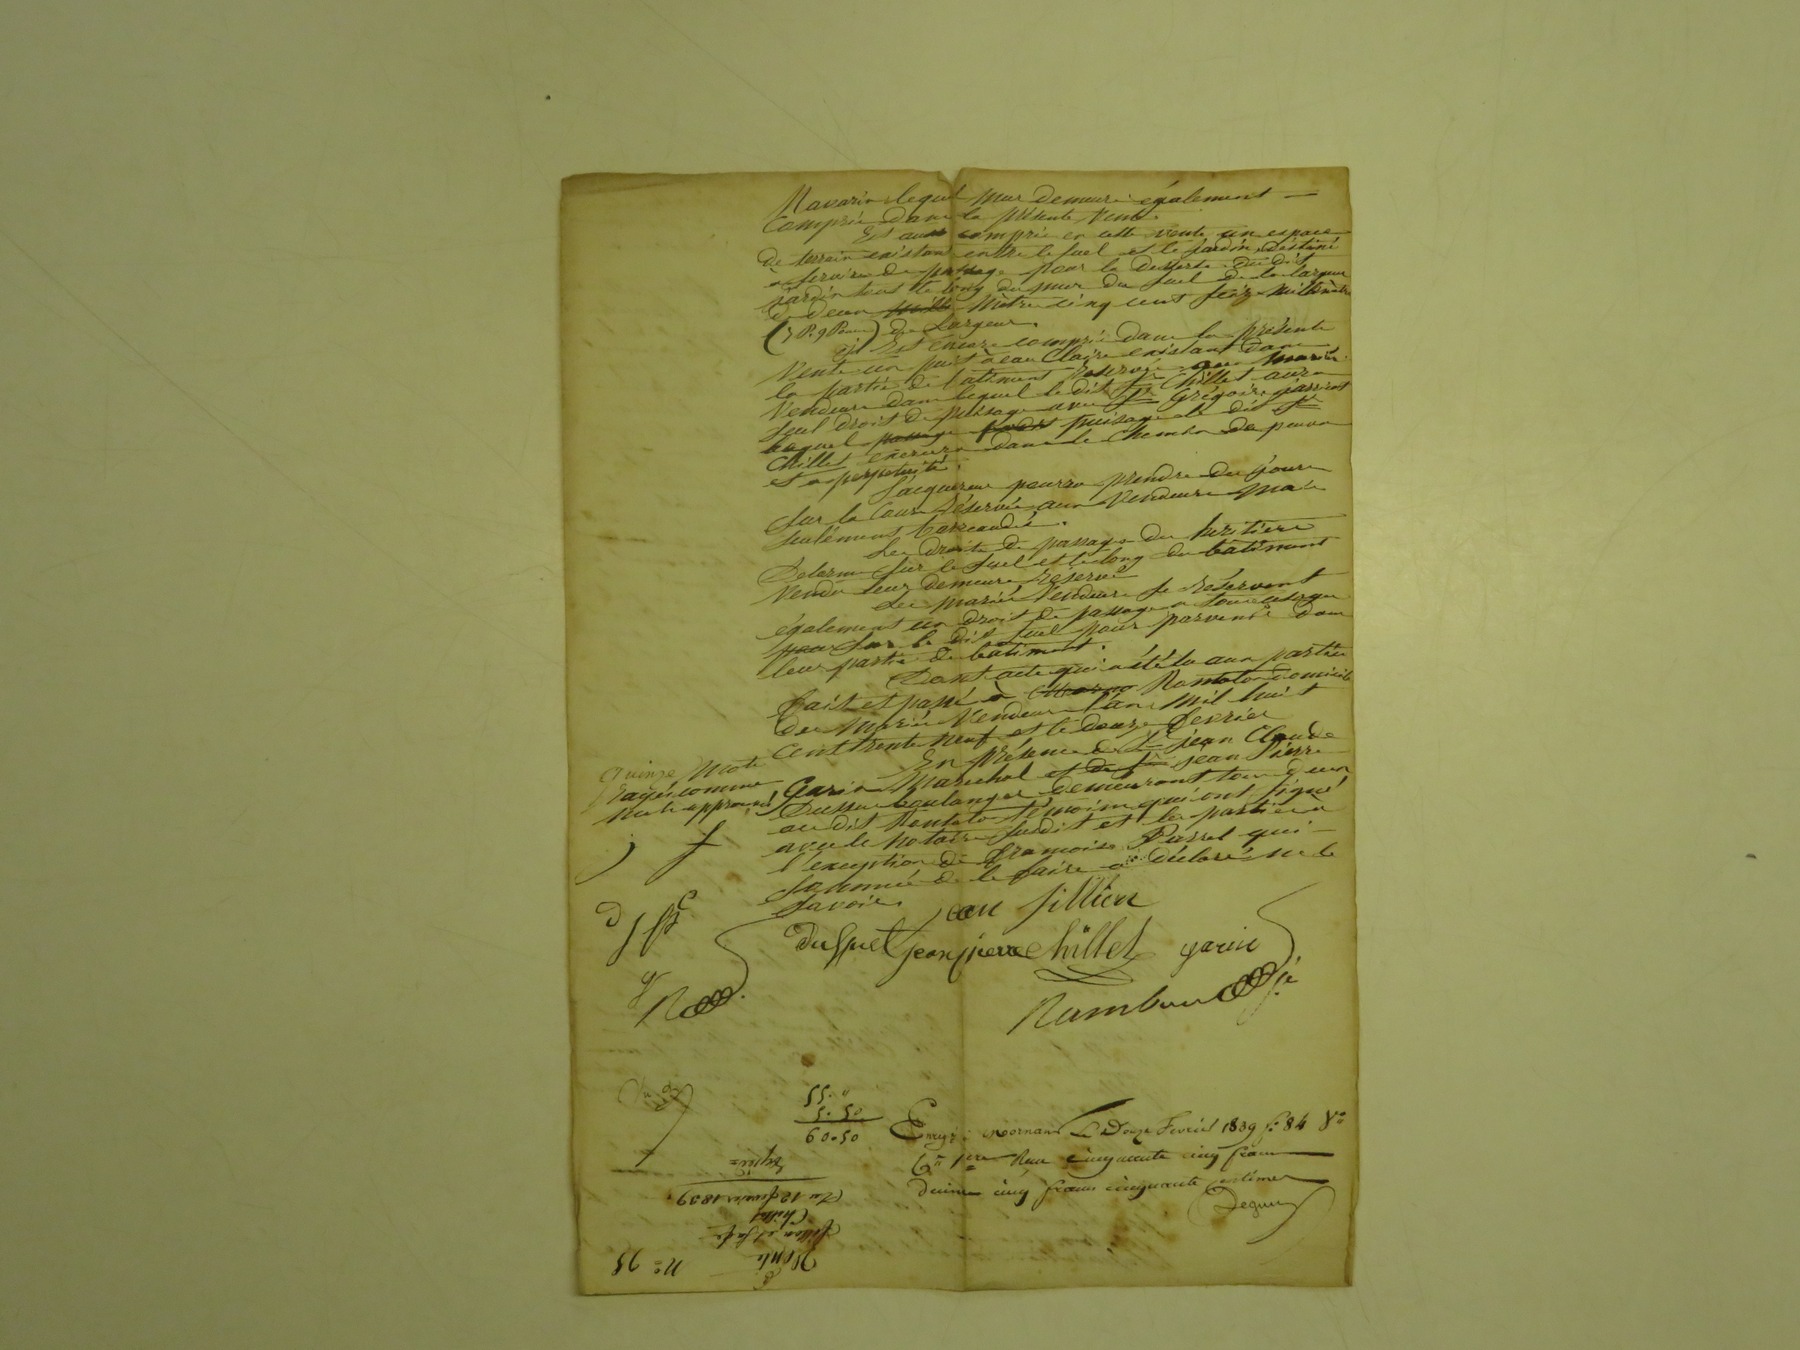 Navarin lequel mur demeure également —
Comprie dans la présente Vente.
Est aussi comprie en cette vente un espace
de terrain existant entre le suel et le jardin destiné
a servire de passage pour la desserte du dit
jardin tout le long du mur du suel de la largeur
de deux mille Mètre cinq cent seize millimètre
(7 P. 9 Pouce) de Largeur.
il Est encore comprie dans la présente
Vente un puit à eau Claire existant dans
la partie de batiment réservé aux mariés
Vendeurs dans lequel le dit Sr Chillet aura
seul droit de puisage avec Sr Grégoire
lequel passage puisage le dit Sr
Chillet exercera dans le Chemin de
et a perpetuité.
L'acquereur pourra prendre du jour
sur la Cour réservée aux Vendeurs mais
seulement barreaudé.
Les droits de passage des héritiers
Delorme sur le suel et le long du bâtiment
Vendu leur demeure réservé
Les mariés Vendeurs se réservent
également un droit de passage a tous usage
pour sur le dit suel pour parvenir dans
leur partie de bâtiment.
Dont acte qui a été lu aux parties
Fait et passé à Mornan Rontalon domicile
des Mariés Vendeurs l'an Mil huit
Cent trente neuf et le douze Fevrier
En présence de Sr jean Claude
Garin Marechal et de Sr jean Pierre
boulanger demeurant tous deux
au dit Rontalon témoins qui ont signé
avec le notaire susdit et les parties a
l'exception de Françoise Passel qui —
sommée de le faire a déclaré ne le
savoir.
quinze mots
rayés comme
nuls approuvés
jean fillion
Dusspuel jean pierre Chillet garin
Rambaud
55. "
5. 50
60-50
Enregé à Mornan Le Douze Fevrier 1839 fo 84 Vo
Cn 1ere Reçu cinquante cinq francs
decime cinq francs cinquante centimes
No 95
Vente
fillion et sa fe
Chillet
Du 12 fevrier 1839